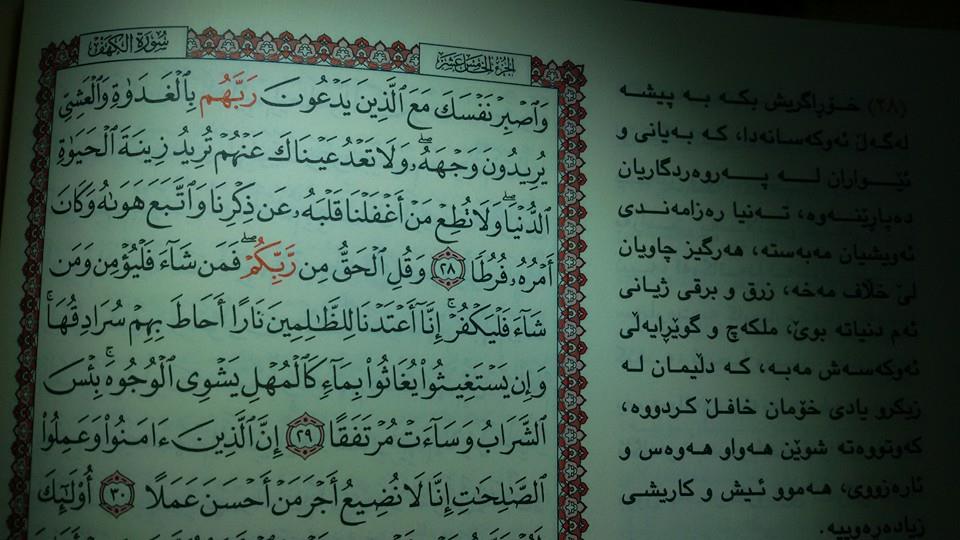 سُورَةُ الكَهْفِ
الجُزْءُ الخَامِسَ عَشَرَ
وَٱصْبِرْ نَفْسَكَ مَعَ ٱلَّذِينَ يَدْعُونَ رَبَّهُم بِٱلْغَدَوٰةِ وَٱلْعَشِيِّ
يُرِيدُونَ وَجْهَهُۥۖ وَلَا تَعْدُ عَيْنَاكَ عَنْهُمْ تُرِيدُ زِينَةَ ٱلْحَيَوٰةِ
ٱلدُّنْيَاۖ وَلَا تُطِعْ مَنْ أَغْفَلْنَا قَلْبَهُۥ عَن ذِكْرِنَا وَٱتَّبَعَ هَوَىٰهُ وَكَانَ
أَمْرُهُۥ فُرُطًا ٢٨ وَقُلِ ٱلْحَقُّ مِن رَّبِّكُمْۖ فَمَن شَآءَ فَلْيُؤْمِن وَمَن
شَآءَ فَلْيَكْفُرْۚ إِنَّآ أَعْتَدْنَا لِلظَّٰلِمِينَ نَارًا أَحَاطَ بِهِمْ سُرَادِقُهَاۚ
وَإِن يَسْتَغِيثُوا۟ يُغَاثُوا۟ بِمَآءٍ كَٱلْمُهْلِ يَشْوِى ٱلْوُجُوهَۚ بِئْسَ
ٱلشَّرَابُ وَسَآءَتْ مُرْتَفَقًا ٢٩ إِنَّ ٱلَّذِينَ ءَامَنُوا۟ وَعَمِلُوا۟
ٱلصَّٰلِحَٰتِ إِنَّا لَا نُضِيعُ أَجْرَ مَنْ أَحْسَنَ عَمَلًا ٣٠ أُو۟لَٰٓئِكَ
(٢٨) خۆڕاگریش بکە بە پیشە
لەگەڵ ئەوکەسانەدا، کە بەیانی و
ئێواران لە پەروەردگاریان
دەپاڕێنەوە، تەنیا ڕەزامەندی
ئەویشیان مەبەستە، هەرگیز چاویان
لێ خلاف مەخە، زرق و برقی ژیانی
ئەم دنیاتە بوێ، ملکەچ و گوێڕایەڵی
ئەوکەسەش مەبە، کە دڵیمان لە
زیکرو یادی خۆمان غافڵ کردووە،
کەوتووەتە شوێن هەواو هەوەس و
ئارەزووی، هەموو ئیش و کاریشی
زیادەڕەوییە.